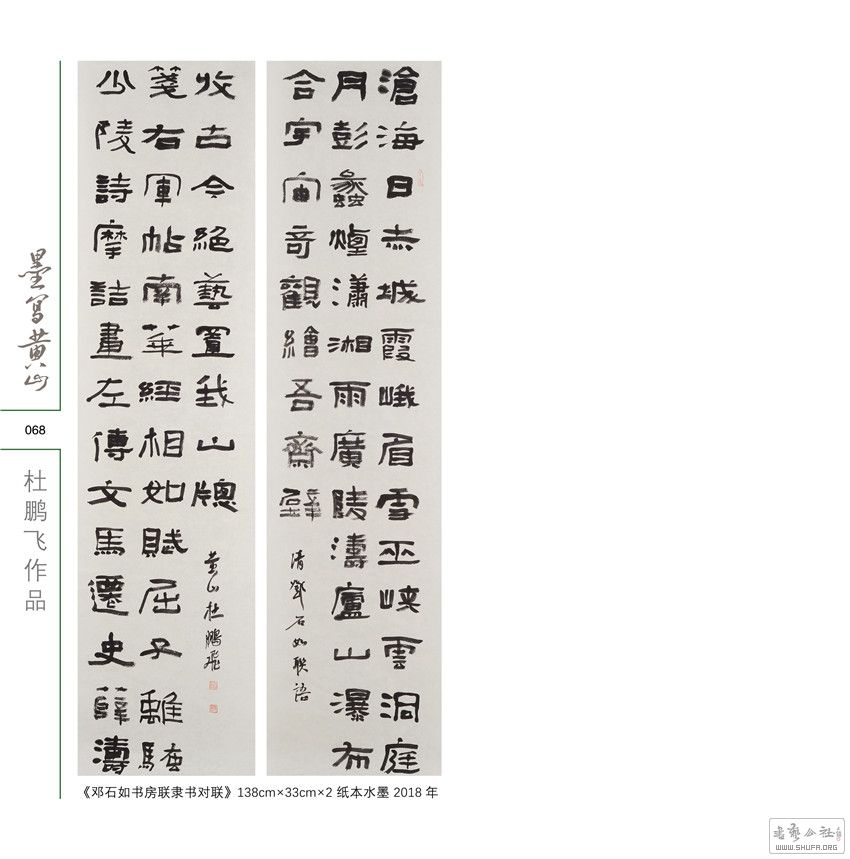 滄海日赤城霞峨眉雪巫峽雲洞庭
月彭蠡煙瀟湘雨廣陵濤廬山瀑布
合宇宙奇觀繪吾齋壁
清鄧石如联語
少陵詩摩詰畫左傳文馬遷史薛濤
箋右軍帖南華經相如賦屈子離騷
收古今絕藝置我山牕
黄山杜鵬飛
墨寫黄山
068
杜鹏飞作品
《邓石如书房联隶书对联》138cm×33cm×2 纸本水墨 2018 年
书艺公社
WWW.SHUFA.ORG